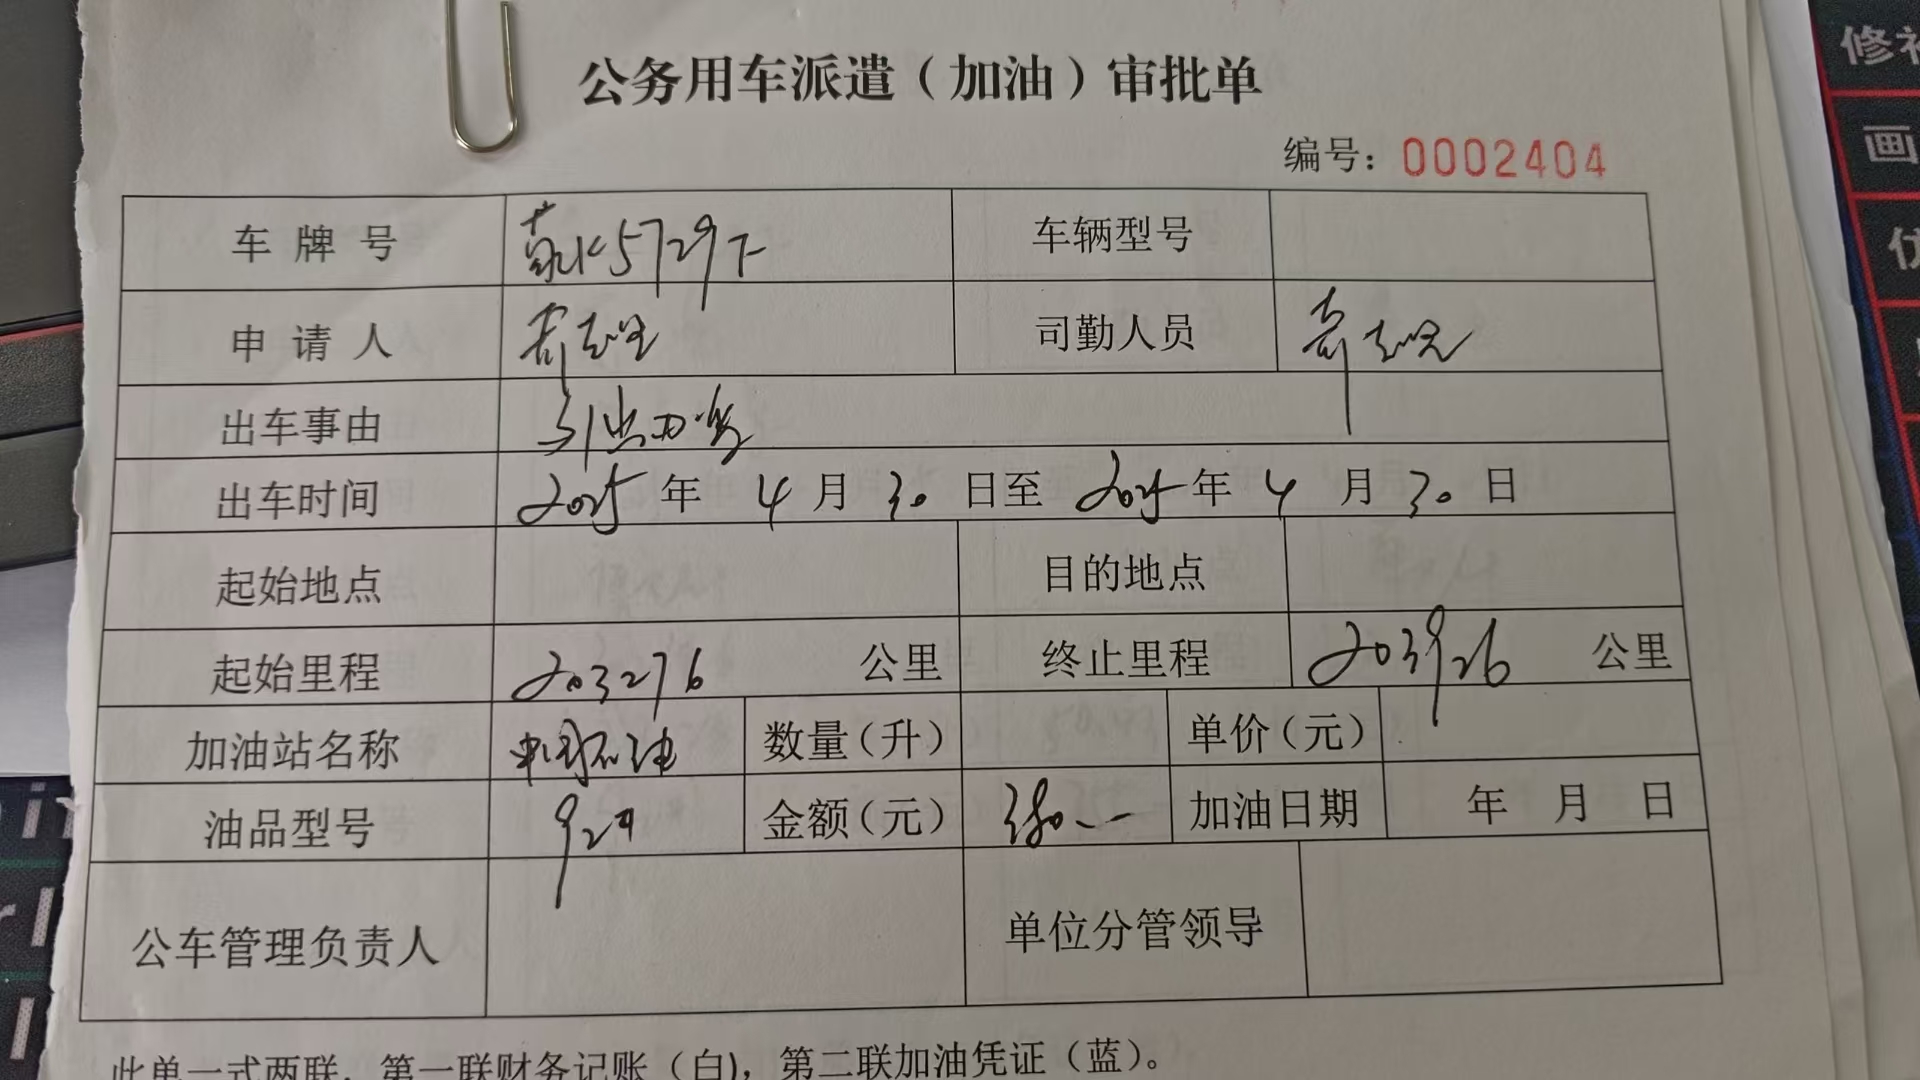 公务用车派遣（加油）审批单
编号：0002404
车牌号 蒙K5729 车辆型号
申请人 司勤人员
出车事由
出车时间 2025年4月30日至2025年4月30日
起始地点 目的地点
起始里程 203276 公里 终止里程 203926 公里
加油站名称 中国石油 数量（升） 单价（元）
油品型号 92# 金额（元） 加油日期 年 月 日
公车管理负责人 单位分管领导
此单一式两联，第一联财务记账（白），第二联加油凭证（蓝）。
画